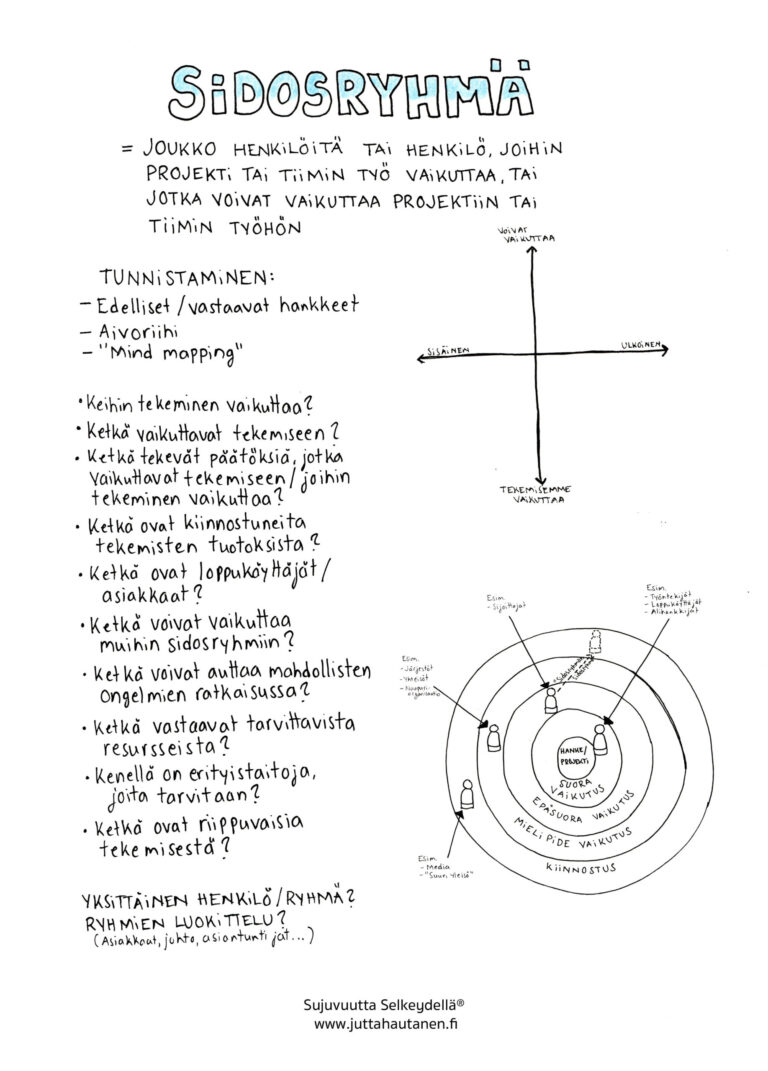 SiDOSRYHMÄ
= JOUKKO HENKiLÖiTÄ TAi HENKiLÖ, JOiHiN
PROJEKTi TAi TiiMiN TYÖ VAiKUTTAA, TAi
JOTKA VOiVAT VAiKUTTAA PROJEKTiiN TAi
TiiMiN TYÖHÖN
VOiVAT
VAiKUTTAA
SiSÄiNEN
ULKOiNEN
TEKEMiSEMME
VAiKUTTAA
TUNNiSTAMiNEN:
- Edelliset / vastaavat hankkeet
- Aivoriihi
- "Mind mapping"
• Keihin tekeminen vaikuttaa?
• Ketkä vaikuttavat tekemiseen?
• Ketkä tekevät päätöksiä, jotka
vaikuttavat tekemiseen / joihin
tekeminen vaikuttaa?
• Ketkä ovat kiinnostuneita
tekemisten tuotoksista?
• Ketkä ovat loppukäyttäjät /
asiakkaat?
• Ketkä voivat vaikuttaa
muihin sidosryhmiin?
• Ketkä voivat auttaa mahdollisten
ongelmien ratkaisussa?
• Ketkä vastaavat tarvittavista
resursseista?
• Kenellä on erityistaitoja,
joita tarvitaan?
• Ketkä ovat riippuvaisia
tekemisestä?
YKSiTTÄiNEN HENKiLÖ / RYHMÄ?
RYHMiEN LUOKiTTELU?
(Asiakkaat, johto, asiantuntijat...)
Esim.
- Sijoittajat
Esim.
- Työntekijät
- Loppukäyttäjät
- Alihankkijat
Esim.
- Järjestöt
- Yhteisöt
HANKE/
PROJEKTi
SUORA
VAiKUTUS
EPÄSUORA VAiKUTUS
MiELiPiDE VAiKUTUS
KiiNNOSTUS
Esim.
- Media
- "Suuri yleisö"
Sujuvuutta Selkeydellä®
www.juttahautanen.fi